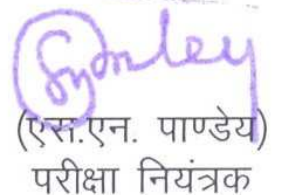 (एस.एन. पाण्डेय)
परीक्षा नियंत्रक